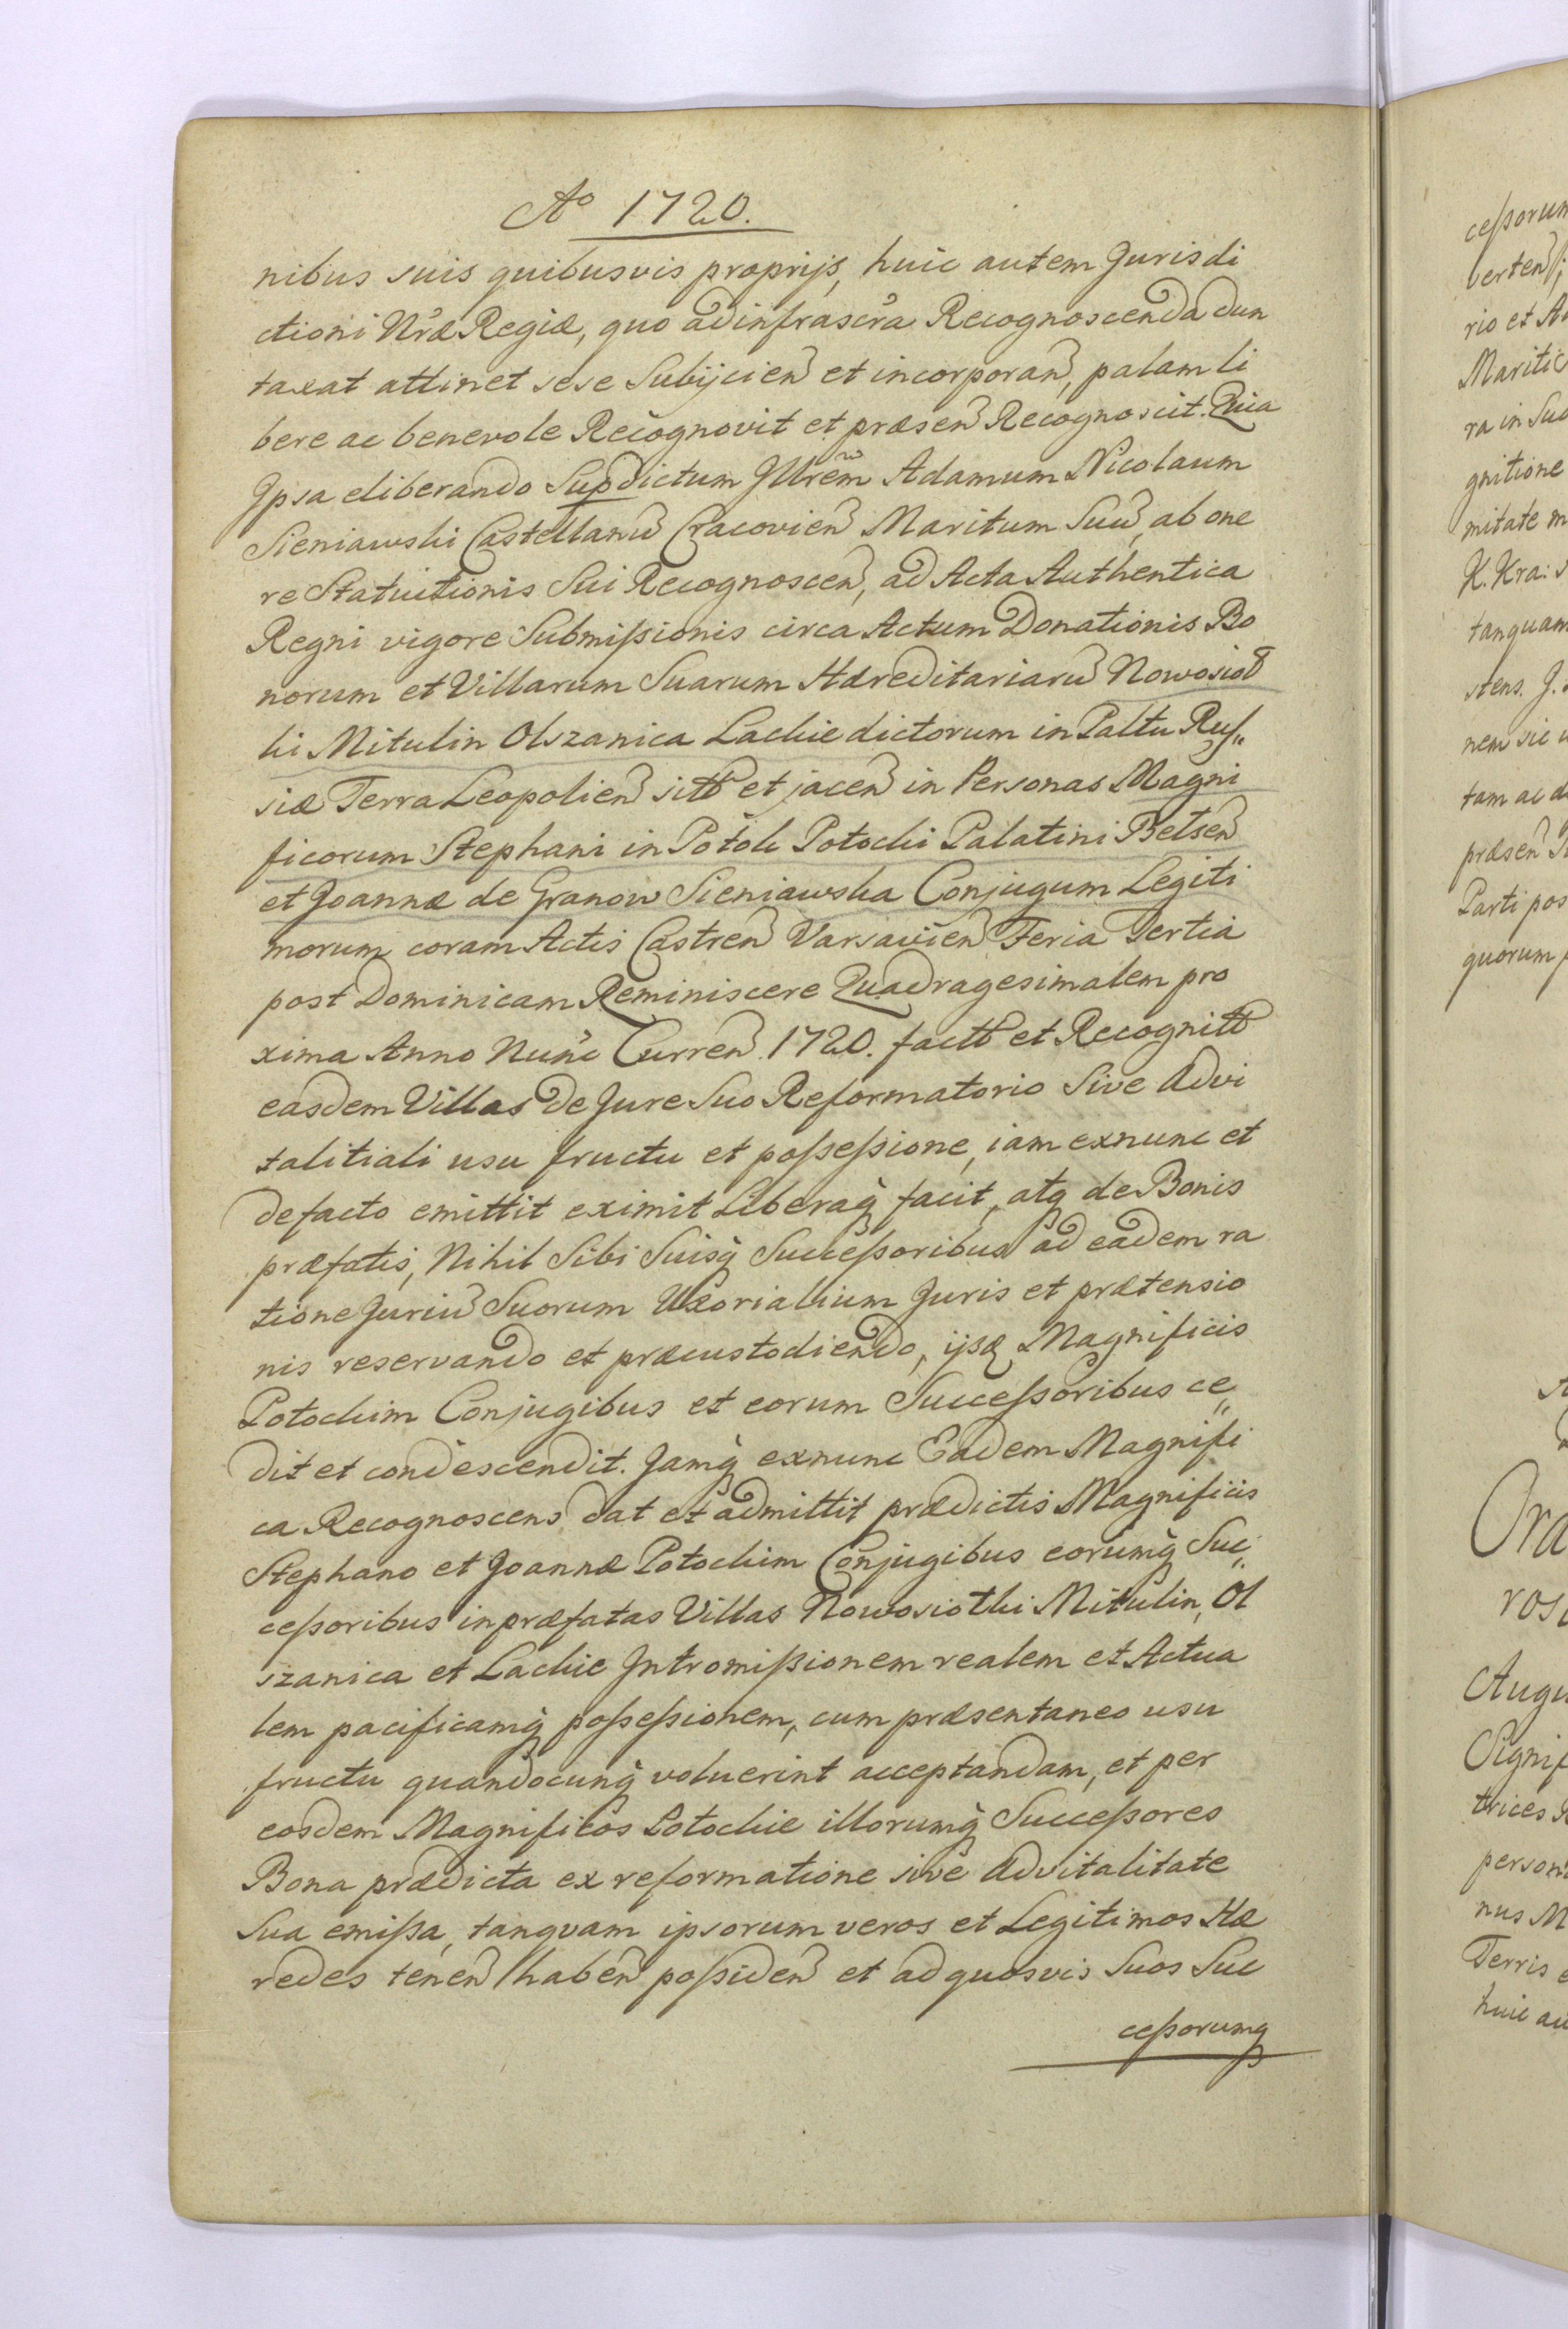 Aº 1720.
nibus suis quibusvis proprijs, huic autem Jurisdi
ctioni Nræ Regiæ, quo ad infrascra Recognoscenda dun
taxat attinet sese Subijcien et incorporan, palam li
bere ac benevole Recognovit et præsen Recognoscit. Quia
Ipsa eliberando Supdictum Illrem Adamum Nicolaum
Sieniawski Castellanu Cracovien Maritum Suu, ab one
re Statuitionis Sui Recognoscen, ad Acta Authentica
Regni vigore Submissionis circa Actum Donationis Bo
norum et Villarum Suarum Hæreditariaru Nowosioł
ki Mitulin Olszanica Lackie dictorum in Paltu Rus„
siæ Terra Leopolien sitt et jacen in Personas Magni
ficorum Stephani in Potok Potocki Palatini Belsen
et Joannæ de Granow Sieniawska Conjugum Legiti
morum coram Actis Castren Varsavien Feria Tertia
post Dominicam Reminiscere Quadragesimalem pro
xima Anno Nunc Curren 1720. factt et Recognitt
easdem Villas de Jure Suo Reformatorio Sive Advi
talitiali usu fructu et possessione, iam exnunc et
defacto emittit eximit Liberaq facit, atq de Bonis
præfatis, Nihil Sibi Suisq Successoribus ad eadem ra
tione Juriu Suorum Uxorialium Juris et prætensio
nis reservando et præcustodiendo, ijsq Magnificis
Potockim Conjugibus et eorum Successoribus ce„
dit et condescendit. Jamq exnunc Eadem Magnifi
ca Recognoscens dat et admittit prædictis Magnificis
Stephano et Joannæ Potockim Conjugibus eorumq Suc„
cessoribus in præfatas Villas Nowosiotki Mitulin, Ol
szanica et Lackie Intromissionem realem et Actua
lem pacificamq possessionem, cum præsentaneo usu
fructu quandocunq voluerint acceptandam, et per
eosdem Magnificos Potockie illorumq Successores
Bona prædicta ex reformatione sive Advitalitate
Sua emissa, tanquam ipsorum veros et Legitimos Hæ
redes tenen haben possiden et ad quosvis Suos Suc
cessorumq
cessorum
verten
rio et A
Mariti
ra in Su
gnitione
mitate m
K. Kra: s
tanquam
stens. J.
nem sic
tam ac d
præsen
Parti pos
quorum
Ora
ros
Augu
Signif
trices
person
nus M
Terris
huic au